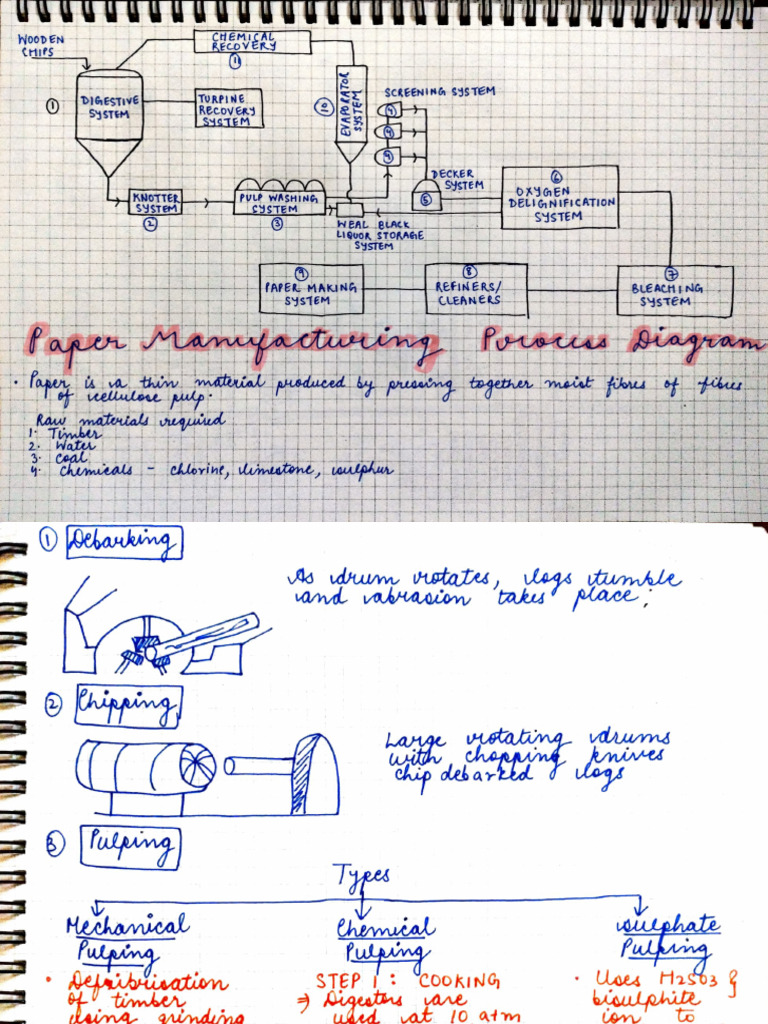 WOODEN
CHIPS
CHEMICAL
RECOVERY
11
1
DIGESTIVE
SYSTEM
TURPINE
RECOVERY
SYSTEM
10
EVAPORATOR
SYSTEM
SCREENING SYSTEM
4
4
4
KNOTTER
SYSTEM
2
PULP WASHING
SYSTEM
3
WEAL BLACK
LIQUOR STORAGE
SYSTEM
DECKER
SYSTEM
5
6
OXYGEN
DELIGNIFICATION
SYSTEM
9
PAPER MAKING
SYSTEM
8
REFINERS/
CLEANERS
7
BLEACHING
SYSTEM
Paper Manufacturing Process Diagram
· Paper is a thin material produced by pressing together moist fibres of fibres
of cellulose pulp.
Raw materials required
1. Timber
2. Water
3. Coal
4. Chemicals - chlorine, limestone, sulphur
1 Debarking
As drum rotates, logs tumble
and abrasion takes place;
2 Chipping
Large rotating drums
with chopping knives
chip debarked logs
3 Pulping
Types
Mechanical
Pulping
· Defribrisation
of timber
using grinding
Chemical
Pulping
STEP 1: COOKING
⇒ Digestors are
used at 10 atm
sulphate
Pulping
· Uses H2SO3 &
bisulphite
ion to